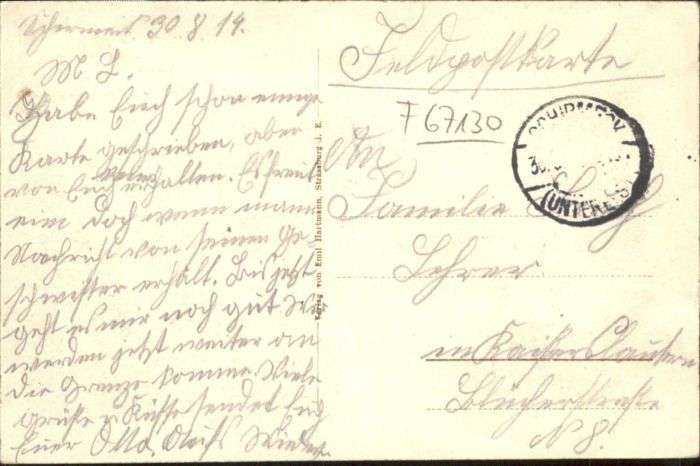 Schirmeck 30. 8. 14.
M L.
Habe Euch schon einige
Karte geschrieben, aber
von Euch keine erhalten. Es freut
eim doch wenn mann
Nachricht von seinen Ge-
schwister erhält. Bis jetzt
geht es mir noch gut. Wir
werden jetzt weiter an
die Grenze komme. Viele
Grüße u Küsse sendet Euch
Euer Otto, Auf Wieders.
Verlag von Emil Hartmann, Strassburg i. E.
Feldpostkarte
F 67130
SCHIRMECK
(UNTERELS)
An
Familie
Lehrer
in Kaiserslautern
Blücherstraße
N 8.